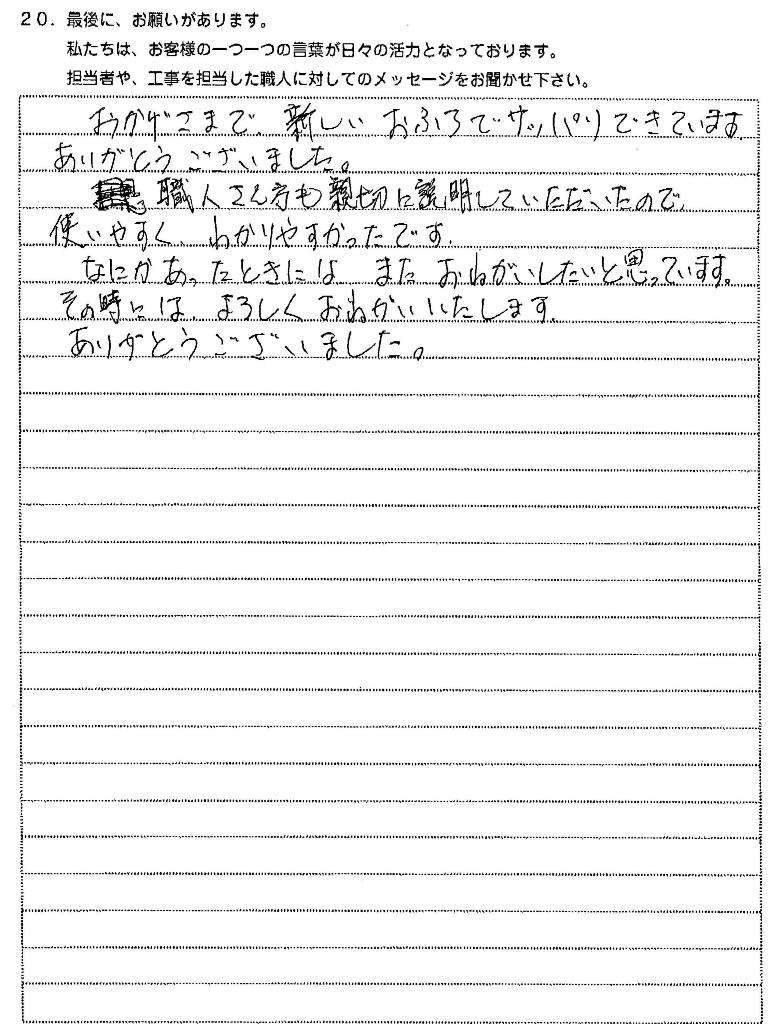 20. 最後に、お願いがあります。
私たちは、お客様の一つ一つの言葉が日々の活力となっております。
担当者や、工事を担当した職人に対してのメッセージをお聞かせ下さい。
おかげさまで、新しい おふろでサッパリできています。
ありがとうございました。
職人さん方も親切に説明していただいたので、
使いやすく、わかりやすかったです。
なにかあったときには また おねがいしたいと思っています。
その時には、よろしく おねがいいたします。
ありがとうございました。